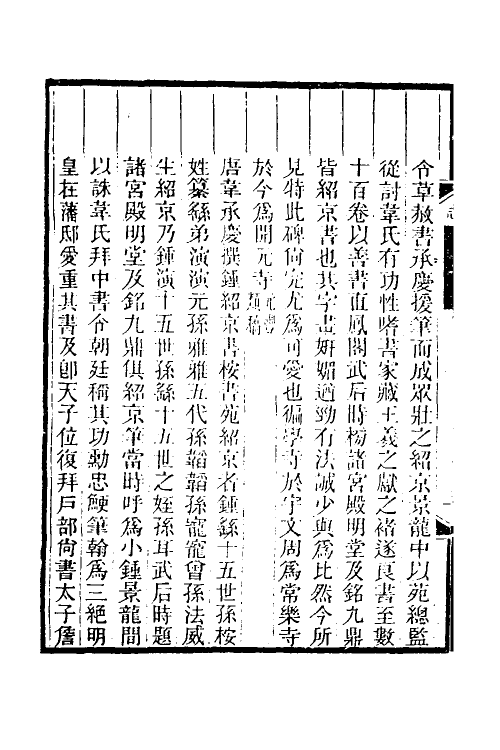 令草赦書承慶援筆而成眾壯之紹京景龍中以苑總監
從討韋氏有功性嗜書家藏王羲之獻之褚遂良書至數
十百卷以善書直鳳閣武后時榜諸宮殿明堂及銘九鼎
皆紹京書也其字畫妍媚遒勁有法誠少與為比然今所
見特此碑尚完尤為可愛也徧學寺於宇文周為常樂寺
於今為開元寺元豐類稿
唐韋承慶撰鍾紹京書按書苑紹京者鍾繇十五世孫桉
姓纂繇弟演演元孫雅雅五代孫韜韜孫寵寵曾孫法威
生紹京乃鍾演十五世孫繇十五世之姪孫耳武后時題
諸宮殿明堂及銘九鼎俱紹京筆當時呼為小鍾景龍間
以誅韋氏拜中書令朝廷稱其功勳忠鯁筆翰為三絕明
皇在藩邸愛重其書及卽天子位復拜戶部尙書太子詹